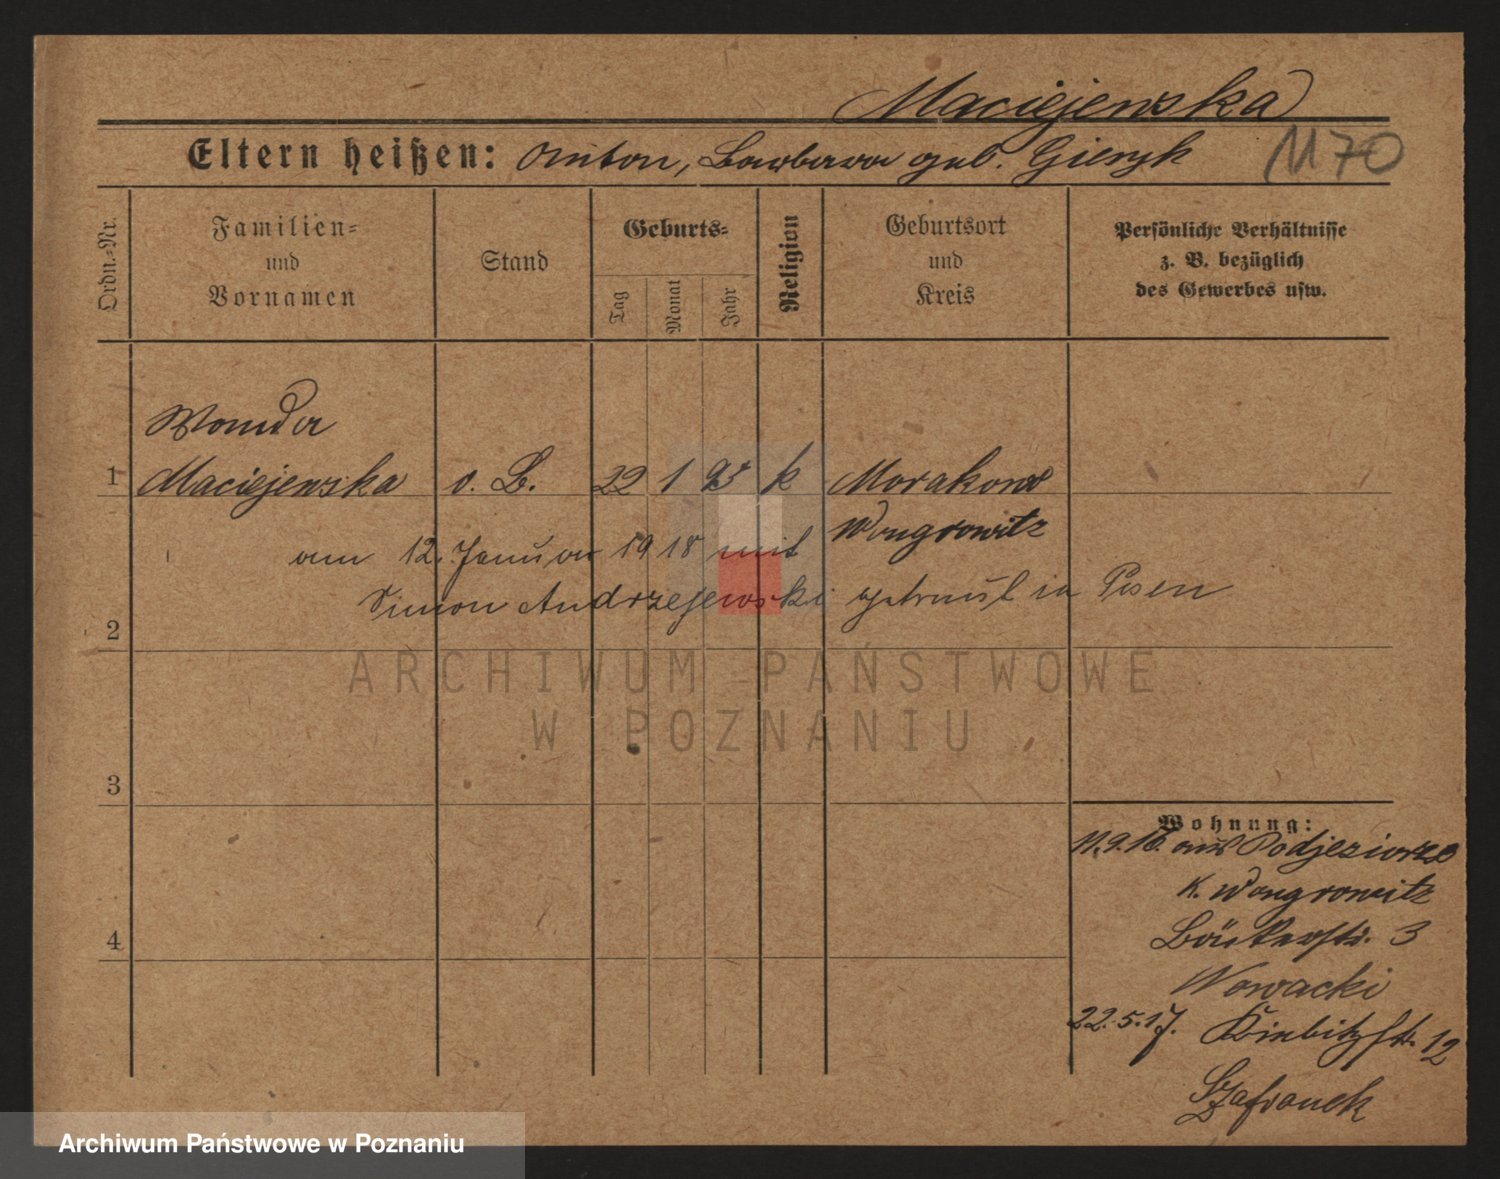 Maciejewska
Eltern heißen: Anton, Barbara geb. Gieryk
1170
Ordn.-Nr.
Familien-
und
Vornamen
Stand
Geburts-
Tag
Monat
Jahr
Religion
Geburtsort
und
Kreis
Persönliche Verhältnisse
z. B. bezüglich
des Gewerbes usw.
Wanda
1 Maciejewska o. B. 22 1 93 k Morakowo
Wongrowitz
am 12. Januar 1918 mit
Simon Andrzejewski getraut in Posen
2
ARCHIWUM PAŃSTWOWE
W POZNANIU
3
Wohnung:
11.9.16. aus Podjeziorze
K. Wongrowitz
4
Bäckerstr. 3
Nowacki
22.5.17. Kiebitzstr. 12
Szafranek
Archiwum Państwowe w Poznaniu